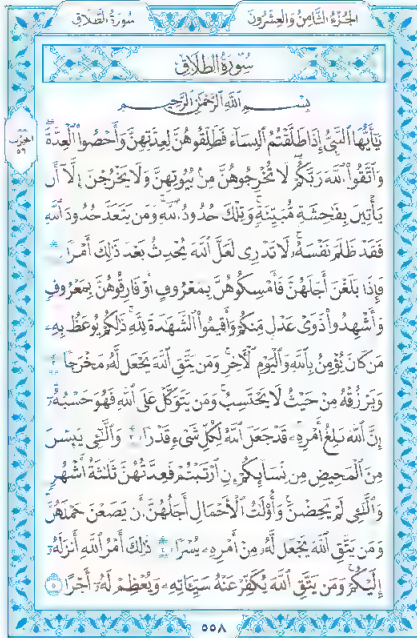 الجُزْءُ الثَّامِنُ وَالعِشْرُونَ سُورَةُ الطَّلَاقِ
سُورَةُ الطَّلَاقِ
بِسْمِ اللَّهِ الرَّحْمَٰنِ الرَّحِيمِ
يَٰٓأَيُّهَا ٱلنَّبِيُّ إِذَا طَلَّقْتُمُ ٱلنِّسَآءَ فَطَلِّقُوهُنَّ لِعِدَّتِهِنَّ وَأَحْصُوا۟ ٱلْعِدَّةَ
وَٱتَّقُوا۟ ٱللَّهَ رَبَّكُمْ لَا تُخْرِجُوهُنَّ مِنۢ بُيُوتِهِنَّ وَلَا يَخْرُجْنَ إِلَّآ أَن
يَأْتِينَ بِفَٰحِشَةٍ مُّبَيِّنَةٍ وَتِلْكَ حُدُودُ ٱللَّهِ وَمَن يَتَعَدَّ حُدُودَ ٱللَّهِ
فَقَدْ ظَلَمَ نَفْسَهُۥ لَا تَدْرِى لَعَلَّ ٱللَّهَ يُحْدِثُ بَعْدَ ذَٰلِكَ أَمْرًا
فَإِذَا بَلَغْنَ أَجَلَهُنَّ فَأَمْسِكُوهُنَّ بِمَعْرُوفٍ أَوْ فَارِقُوهُنَّ بِمَعْرُوفٍ
وَأَشْهِدُوا۟ ذَوَىْ عَدْلٍ مِّنكُمْ وَأَقِيمُوا۟ ٱلشَّهَٰدَةَ لِلَّهِ ذَٰلِكُمْ يُوعَظُ بِهِۦ
مَن كَانَ يُؤْمِنُ بِٱللَّهِ وَٱلْيَوْمِ ٱلْءَاخِرِ وَمَن يَتَّقِ ٱللَّهَ يَجْعَل لَّهُۥ مَخْرَجًا ٢
وَيَرْزُقْهُ مِنْ حَيْثُ لَا يَحْتَسِبُ وَمَن يَتَوَكَّلْ عَلَى ٱللَّهِ فَهُوَ حَسْبُهُۥٓ
إِنَّ ٱللَّهَ بَٰلِغُ أَمْرِهِۦ قَدْ جَعَلَ ٱللَّهُ لِكُلِّ شَىْءٍ قَدْرًا ٣ وَٱلَّٰٓـِٔى يَئِسْنَ
مِنَ ٱلْمَحِيضِ مِن نِّسَآئِكُمْ إِنِ ٱرْتَبْتُمْ فَعِدَّتُهُنَّ ثَلَٰثَةُ أَشْهُرٍ
وَٱلَّٰٓـِٔى لَمْ يَحِضْنَ وَأُو۟لَٰتُ ٱلْأَحْمَالِ أَجَلُهُنَّ أَن يَضَعْنَ حَمْلَهُنَّ
وَمَن يَتَّقِ ٱللَّهَ يَجْعَل لَّهُۥ مِنْ أَمْرِهِۦ يُسْرًا ٤ ذَٰلِكَ أَمْرُ ٱللَّهِ أَنزَلَهُۥٓ
إِلَيْكُمْ وَمَن يَتَّقِ ٱللَّهَ يُكَفِّرْ عَنْهُ سَيِّـَٔاتِهِۦ وَيُعْظِمْ لَهُۥٓ أَجْرًا ٥
٥٥٨